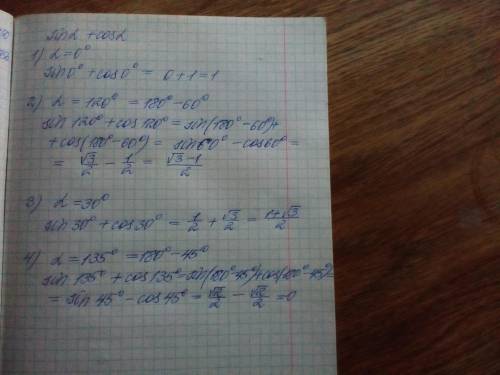 sinα + cosα
1) α = 0°
sin0° + cos0° = 0 + 1 = 1
2) α = 120° = 180° - 60°
sin 120° + cos 120° = sin(180° - 60°) +
+ cos(180° - 60°) = sin60° - cos60° =
= √3/2 - 1/2 = (√3 - 1)/2
3) α = 30°
sin 30° + cos 30° = 1/2 + √3/2 = (1 + √3)/2
4) α = 135° = 180° - 45°
sin 135° + cos 135° = sin(180° - 45°) + cos(180° - 45°) =
= sin 45° - cos 45° = √2/2 - √2/2 = 0